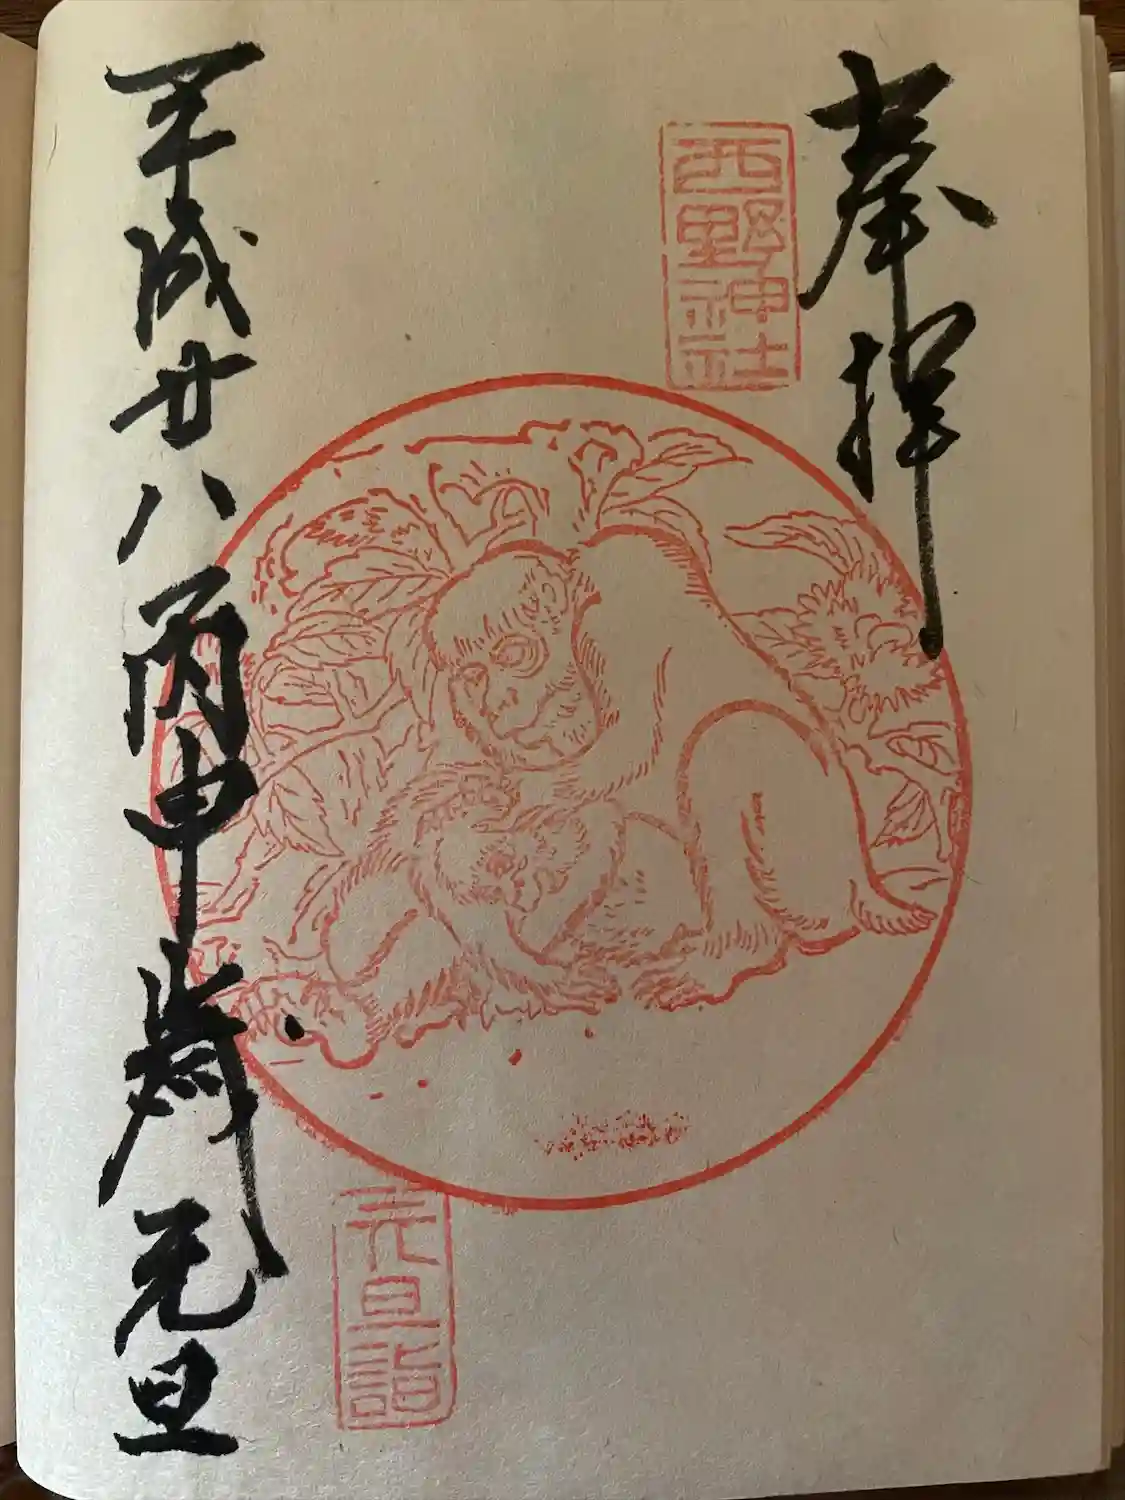 奉拝
西野神社
元旦詣
平成廿八丙申歳元旦